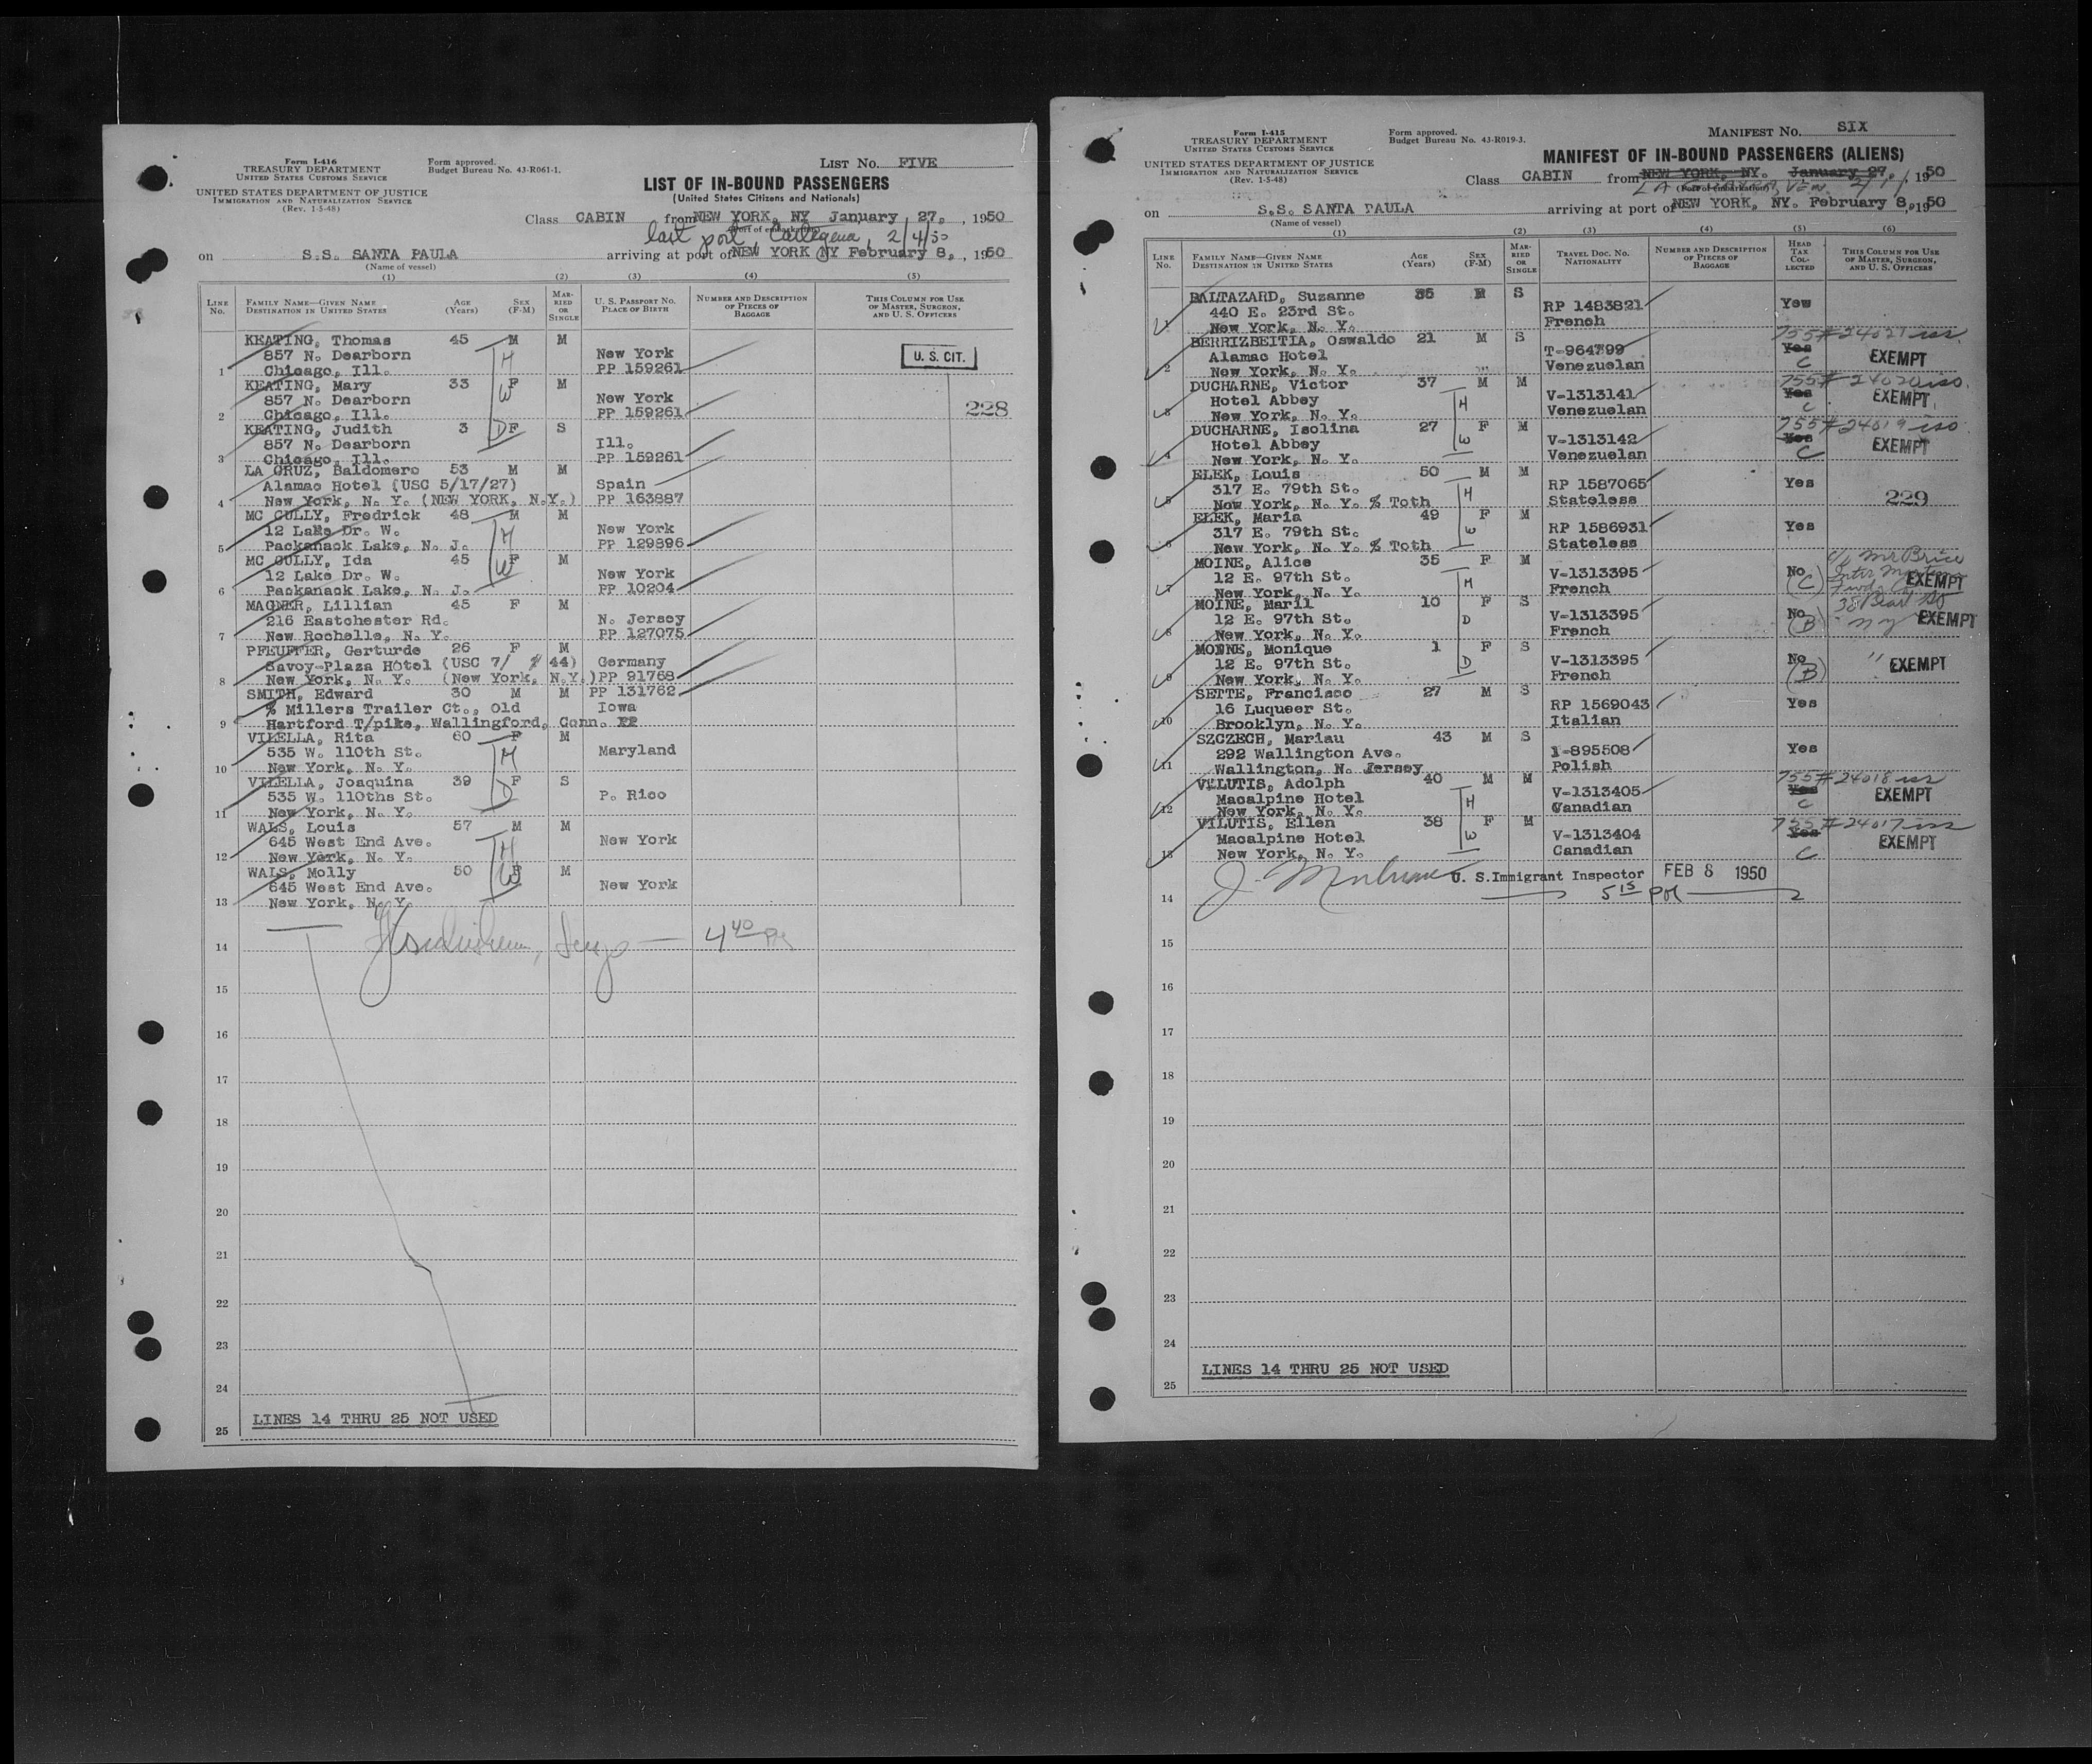 Form I-416
TREASURY DEPARTMENT
UNITED STATES CUSTOMS SERVICE
UNITED STATES DEPARTMENT OF JUSTICE
IMMIGRATION AND NATURALIZATION SERVICE
(Rev. 1-5-48)
Form approved.
Budget Bureau No. 43-R061-1.
LIST NO. FIVE
LIST OF IN-BOUND PASSENGERS
(United States Citizens and Nationals)
Class CABIN from NEW YORK, NY January 27, 1950
(Port of embarkation)
last port, Cartegena, 2/4/50
on S.S. SANTA PAULA arriving at port of NEW YORK NY February 8, 1950
(Name of vessel)
(1) (2) (3) (4) (5)
LINE NO. FAMILY NAME—GIVEN NAME DESTINATION IN UNITED STATES AGE (Years) SEX (F-M) MARRIED OR SINGLE U. S. PASSPORT NO. PLACE OF BIRTH NUMBER AND DESCRIPTION OF PIECES OF BAGGAGE THIS COLUMN FOR USE OF MASTER, SURGEON, AND U. S. OFFICERS
KEATING, Thomas 45 M M
857 N. Dearborn H New York U. S. CIT.
1 Chicago, Ill. PP 159261
KEATING, Mary 33 F M
857 N. Dearborn W New York
2 Chicago, Ill. PP 159261 228
KEATING, Judith 3 D F S
857 N. Dearborn Ill.
3 Chicago, Ill. PP 159261
LA CRUZ, Baldomero 53 M M
Alamac Hotel (USC 5/17/27) Spain
4 New York, N. Y. (NEW YORK, N.Y.) PP 163887
MC CULLY, Fredrick 48 M M
12 Lake Dr. W. H New York
5 Packanack Lake, N. J. PP 129896
MC CULLY, Ida 45 F M
12 Lake Dr. W. W New York
6 Packanack Lake, N. J. PP 10204
MAGNER, Lillian 45 F M
216 Eastchester Rd. N. Jersey
7 New Rochelle, N. Y. PP 127075
PFEUFFER, Gerturde 26 F M
Savoy-Plaza Hotel (USC 7/ 44) Germany
8 New York, N. Y. (New York, N.Y.) PP 91758
SMITH, Edward 30 M M PP 131762
% Millers Trailer Ct., Old Iowa
9 Hartford T/pike, Wallingford, Conn. PP
VILELLA, Rita 60 F M
535 W. 110th St. M Maryland
10 New York, N. Y.
VILELLA, Joaquina 39 F S
535 W. 110ths St. D P. Rico
11 New York, N. Y.
WALS, Louis 57 M M
645 West End Ave. H New York
12 New York, N. Y.
WALS, Molly 50 F M
645 West End Ave. W New York
13 New York, N. Y.
14 4 40 PM
15
16
17
18
19
20
21
22
23
24
LINES 14 THRU 25 NOT USED
25
Form I-415
TREASURY DEPARTMENT
UNITED STATES CUSTOMS SERVICE
UNITED STATES DEPARTMENT OF JUSTICE
IMMIGRATION AND NATURALIZATION SERVICE
(Rev. 1-5-48)
Form approved.
Budget Bureau No. 43-R019-3.
MANIFEST NO. SIX
MANIFEST OF IN-BOUND PASSENGERS (ALIENS)
Class CABIN from NEW YORK, NY. January 27, 1950
(Port of embarkation)
on S.S. SANTA PAULA arriving at port of NEW YORK, NY. February 8, 1950
(Name of vessel)
(1) (2) (3) (4) (5) (6)
LINE NO. FAMILY NAME—GIVEN NAME DESTINATION IN UNITED STATES AGE (Years) SEX (F-M) MARRIED OR SINGLE TRAVEL DOC. NO. NATIONALITY NUMBER AND DESCRIPTION OF PIECES OF BAGGAGE HEAD TAX COLLECTED THIS COLUMN FOR USE OF MASTER, SURGEON, AND U. S. OFFICERS
BALTAZARD, Suzanne 35 S
440 E. 23rd St. RP 1483821 Yew
1 New York, N. Y. French
BERRIZBEITIA, Oswaldo 21 M S 755# 24021 iss
Alamac Hotel T-964799 Yes EXEMPT
2 New York, N. Y. Venezuelan C
DUCHARNE, Victor 37 M M 755# 24020 iss
Hotel Abbey H V-1313141 Yes EXEMPT
3 New York, N. Y. Venezuelan C
DUCHARNE, Isolina 27 F M 755# 24019 iss
Hotel Abbey W V-1313142 Yes EXEMPT
4 New York, N. Y. Venezuelan C
ELEK, Louis 50 M M
317 E. 79th St. H RP 1587065 Yes
5 New York, N. Y. % Toth Stateless 229
ELEK, Maria 49 F M
317 E. 79th St. W RP 1586931 Yes
6 New York, N. Y. % Toth Stateless
MOINE, Alice 35 F M c/o Mr Brice
12 E. 97th St. M V-1313395 No
7 New York, N. Y. French (C) EXEMPT
MOINE, Maril 10 F S 38 Pearl St
12 E. 97th St. D V-1313395 No EXEMPT
8 New York, N. Y. French (B) N Y
MOINE, Monique 1 F S
12 E. 97th St. D V-1313395 No " EXEMPT
9 New York, N. Y. French (B)
SETTE, Francisco 27 M S
16 Luqueer St. RP 1569043 Yes
10 Brooklyn, N. Y. Italian
SZCZECH, Mariau 43 M S
292 Wallington Ave. I-895508 Yes
11 Wallington, N. Jersey Polish
VILUTIS, Adolph 40 M M 755# 24018 iss
Macalpine Hotel H V-1313405 Yes EXEMPT
12 New York, N. Y. Canadian C
VILUTIS, Ellen 38 F M 755# 24017 iss
Macalpine Hotel W V-1313404 Yes EXEMPT
13 New York, N. Y. Canadian C
U. S. Immigrant Inspector FEB 8 1950
14 5 15 PM
15
16
17
18
19
20
21
22
23
24
LINES 14 THRU 25 NOT USED
25